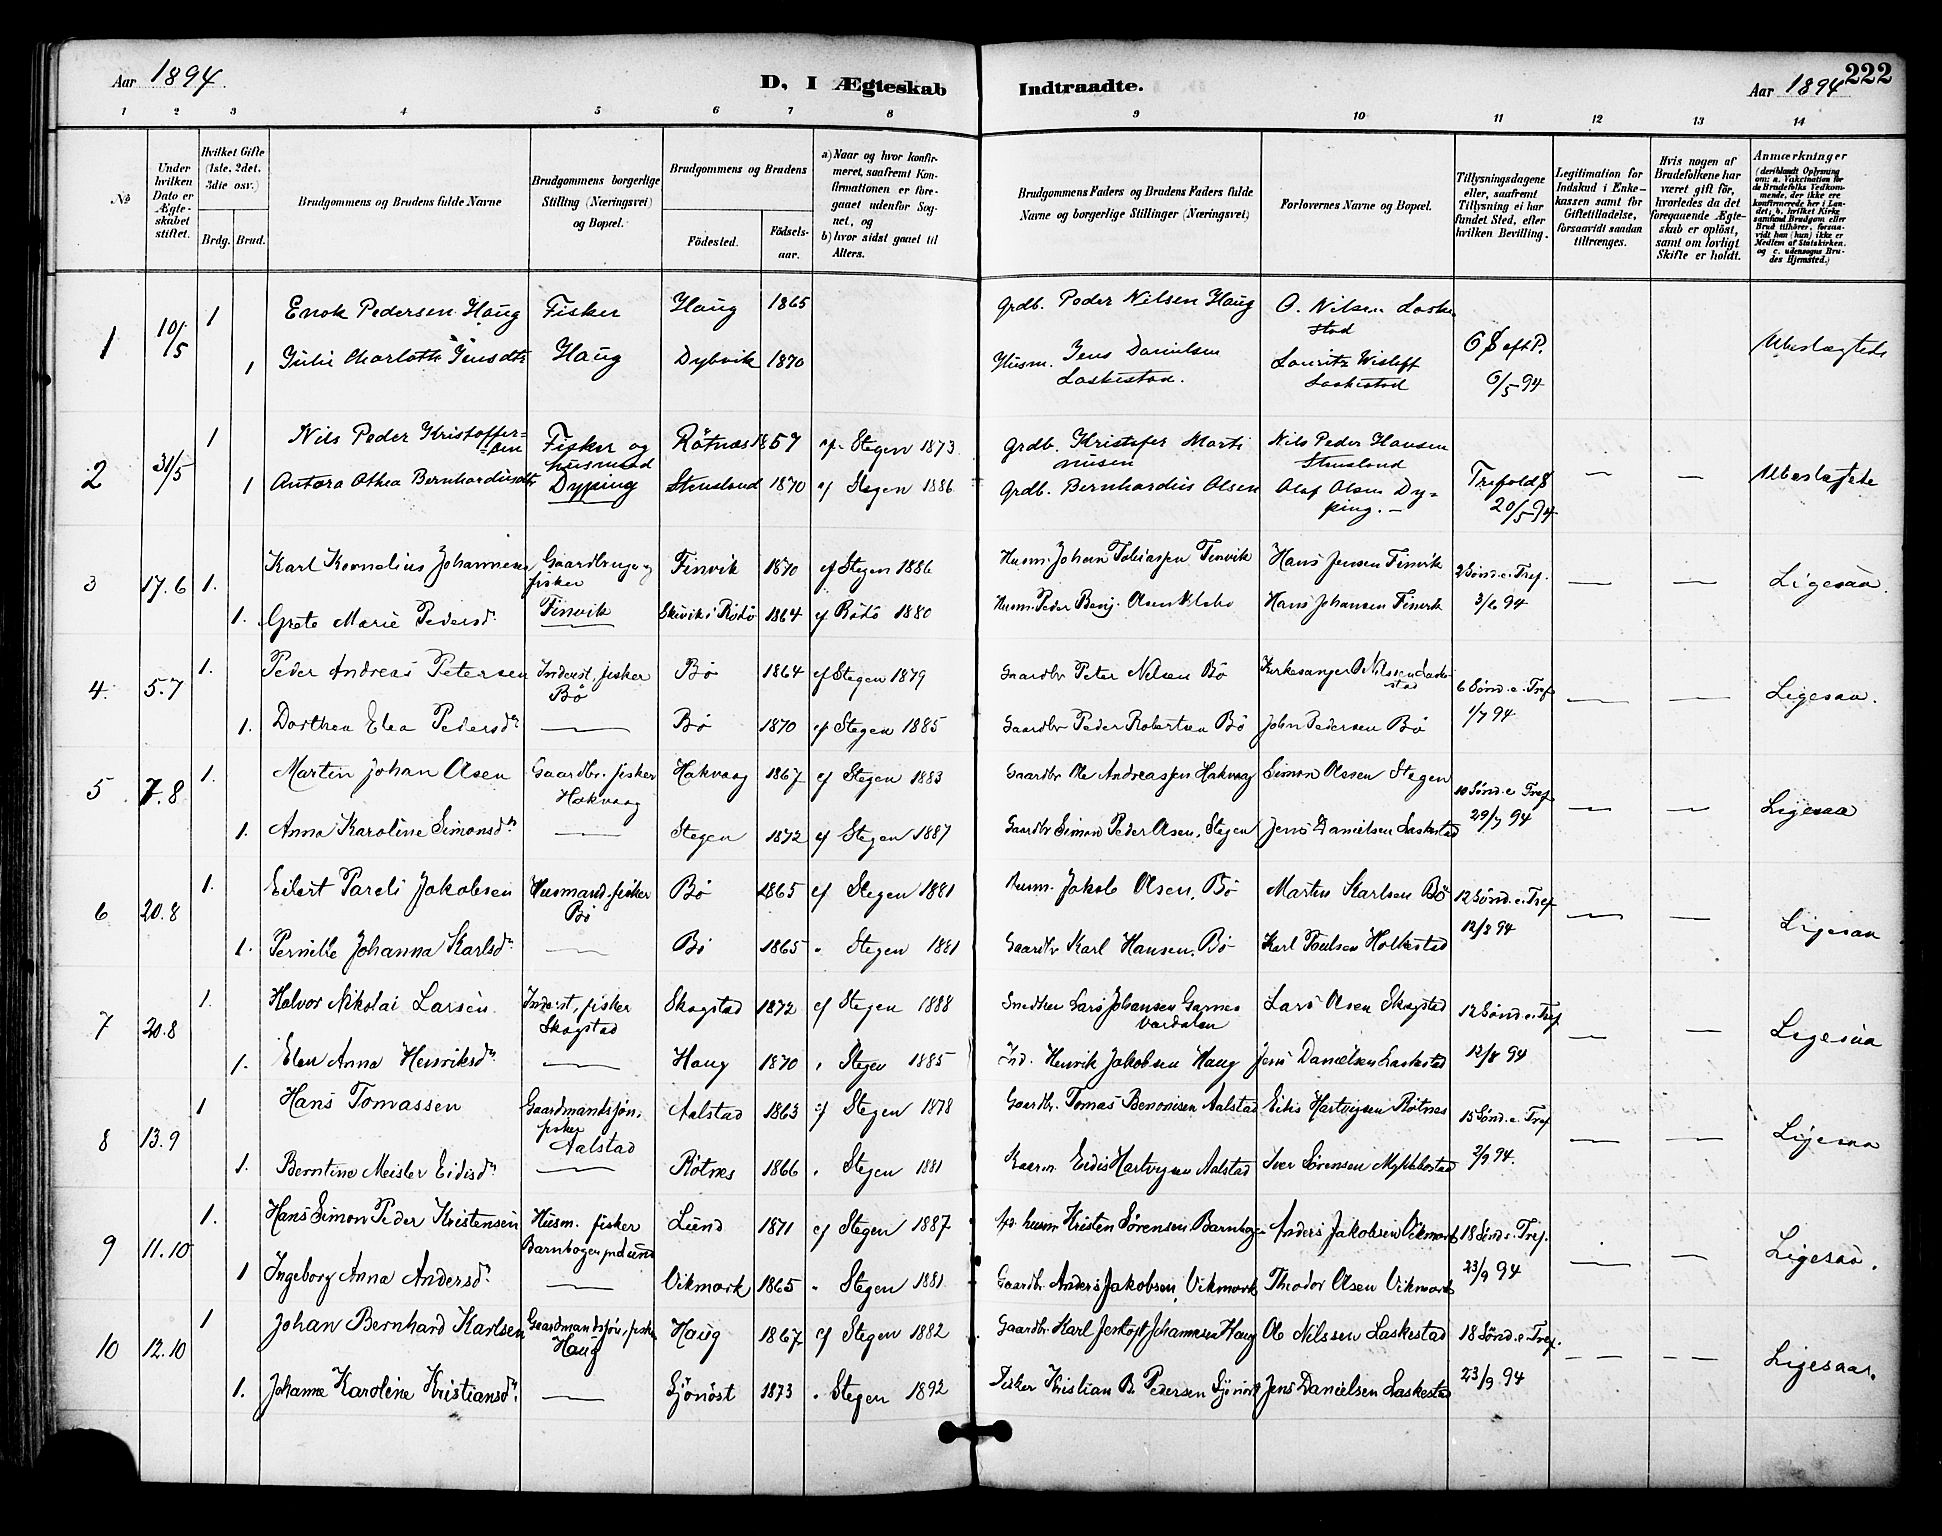 Aar 1894. D, I Ægteskab Indtraadte. Aar 1894 222
1 2 3 4 5 6 7 8 9 10 11 12 13 14
№
Under hvilken Dato er Ægteskabet stiftet.
Hvilket Gifte (1ste, 2det, 3die osv.)
Brdg. Brud.
Brudgommens og Brudens fulde Navne
Brudgommens borgerlige Stilling (Næringsvei) og Bopæl.
Brudgommens og Brudens
Fødested. Fødselsaar.
a) Naar og hvor konfirmeret, saafremt Konfirmationen er foregaaet udenfor Sognet, og
b) hvor sidst gaaet til Alters.
Brudgommens Faders og Brudens Faders fulde Navne og borgerlige Stillinger (Næringsvei)
Forlovernes Navne og Bopæl.
Tillysningsdagene eller, saafremt Tillysning ei har fundet Sted, efter hvilken Bevilling.
Legitimation for Indskud i Enkekassen samt for Giftetilladelse, forsaavidt saadan tiltrænges.
Hvis nogen af Brudefolkene har været gift før, hvorledes da det foregaaende Ægteskab er opløst, samt om lovligt Skifte er holdt.
Anmærkninger (deriblandt Oplysning om: a. Vakcination for de Brudefolks Vedkommende, der ikke ere konfirmerede her i Landet; b. hvilket Kirkesamfund Brudgom eller Brud tilhører, forsaavidt han (hun) ikke er Medlem af Statskirken. og c. udensogns Brudes Hjemsted.)
1 10/5 1 Enok Pedersen Haug Fisker Haug 1865 Grdb. Peder Nilsen Haug O. Nilsen Laskestad 6 S eft P. 6/5 94 Ubeslægtede
1 Julie Charlotte Jensdtr Haug Dybvik 1870 Husm. Jens Danielsen Laskestad. Lauritz Wisløff Laskestad
2 31/5 1 Nils Peder Kristoffersen Fisker og husmand Røtnæs 1857 ef Stegen 1873 Grdb. Kristofer Martinusen Nils Peder Hansen Stensland Trefold S 20/5 94 — — Ubeslægtede
1 Antora Othea Bernhardinsdtr Dyping Stensland 1870 ef Stegen 1886 Grdb. Bernhardus Olsen Olaf Olsen Dyping. —
3 17.6 1. Karl Kornelius Johannesen Gaardbruger og fisker Finvik 1870 ef Stegen 1886 Husm. Johan Tobiassen Finvik Hans Jensen Finvik 2 Sønd. e. Tref. 3/6 94 — — Ligesaa.
1. Grete Marie Pedersd. Finvik Skivik i Bodø 1864 ef Bodø 1880 Husm. Peder Benj. Olsen Hans Johansen Finvik
4. 5.7 1. Peder Andreas Petersen Inderst, fisker Bø Bø 1864 ef Stegen 1879 Gaardbr Peter Nilsen Bø Kirkesanger O Nilssen Laskestad 6 Sønd. e. Tref 1/7 94 — — Ligesaa.
1. Dorthea Elea Pedersd. — Bø 1870 ef Stegen 1885 Gaardbr Peder Robertsen Bø John Pedersen Bø
5 7.8 1. Martin Johan Olsen Gaardbr. fisker Hakvaag Hakvaag 1867 ef Stegen 1883 Gaardbr Ole Andreassen Hakvaag Simon Olssen Stegen 10 Sønd. e Tref 29/7 94 — — Ligesaa
1. Anna Karoline Simonsd. — Stegen 1872 ef Stegen 1887 Gaardbr Simon Peder Olsen, Stegen Jens Danielsen Laskestad
6 20.8 1. Eilert Pareli Jakobsen Husmand, fisker Bø Bø 1865 ef Stegen 1881 Husm. Jakob Olsen, Bø Martin Karlsen Bø 12 Sønd. e. Tref 12/8 94 — — Ligesaa
1. Pernille Johanna Karlsd. — Bø 1865 " Stegen 1881 Gaardbr Karl Hansen, Bø Karl Poulsen Holkestad
7 20.8 1. Halvor Nikolai Larsen Inderst, fisker Skagstad Skagstad 1872 ef Stegen 1888 Snedker Lars Johansen Garnes Værdalen Lars Olsen Skagstad 12 Sønd. e. Tref 12/8 94 — — Ligesaa
1. Elen Anna Henriksd. — Haug 1870 " Stegen 1885 Ind. Henrik Jakobsen Haug Jens Danielsen Laskestad
8 13.9 1 Hans Tomassen Gaardmandssøn, fisker Aalstad Aalstad 1863 ef Stegen 1878 Gaardbr. Tomas Benonisen Aalstad Eidis Hartvigsen Røtnes 15 Sønd. e. Tref 2/9 94. — — Ligesaa
1. Berntine Meisler Eidisd. — Røtnes 1866 " Stegen 1881 Eidis Hartvigsen Aalstad Iver Sørensen Myklebostad
9 11.10 1. Hans Simon Peder Kristensen Husm. fisker Barnbogen Lund Lund 1871 ef Stegen 1887 husm Kristen Sørensen Barnbogen Anders Jakobsen Vikmark 18 Sønd e. Tref. 23/9 94 — — Ligesaa.
1 Ingeborg Anna Andersd. — Vikmark 1865 " Stegen 1881 Gaardbr. Anders Jakobsen, Vikmark Theodor Olsen Vikmark
10 12.10 1 Johan Bernhard Karlsen Gaardmandssøn, fisker Haug Haug 1867 ef Stegen 1882 Gaardbr. Karl Johannesen Haug Ole Nilssen Laskestad 18 Sønd. e. Tref. 23/9 94 — — Ligesaa.
1. Johanna Karoline Kristiansd. — Sjönöst 1873 " Stegen 1892 Fisker Kristian B. Pedersen Jens Danielsen Laskestad